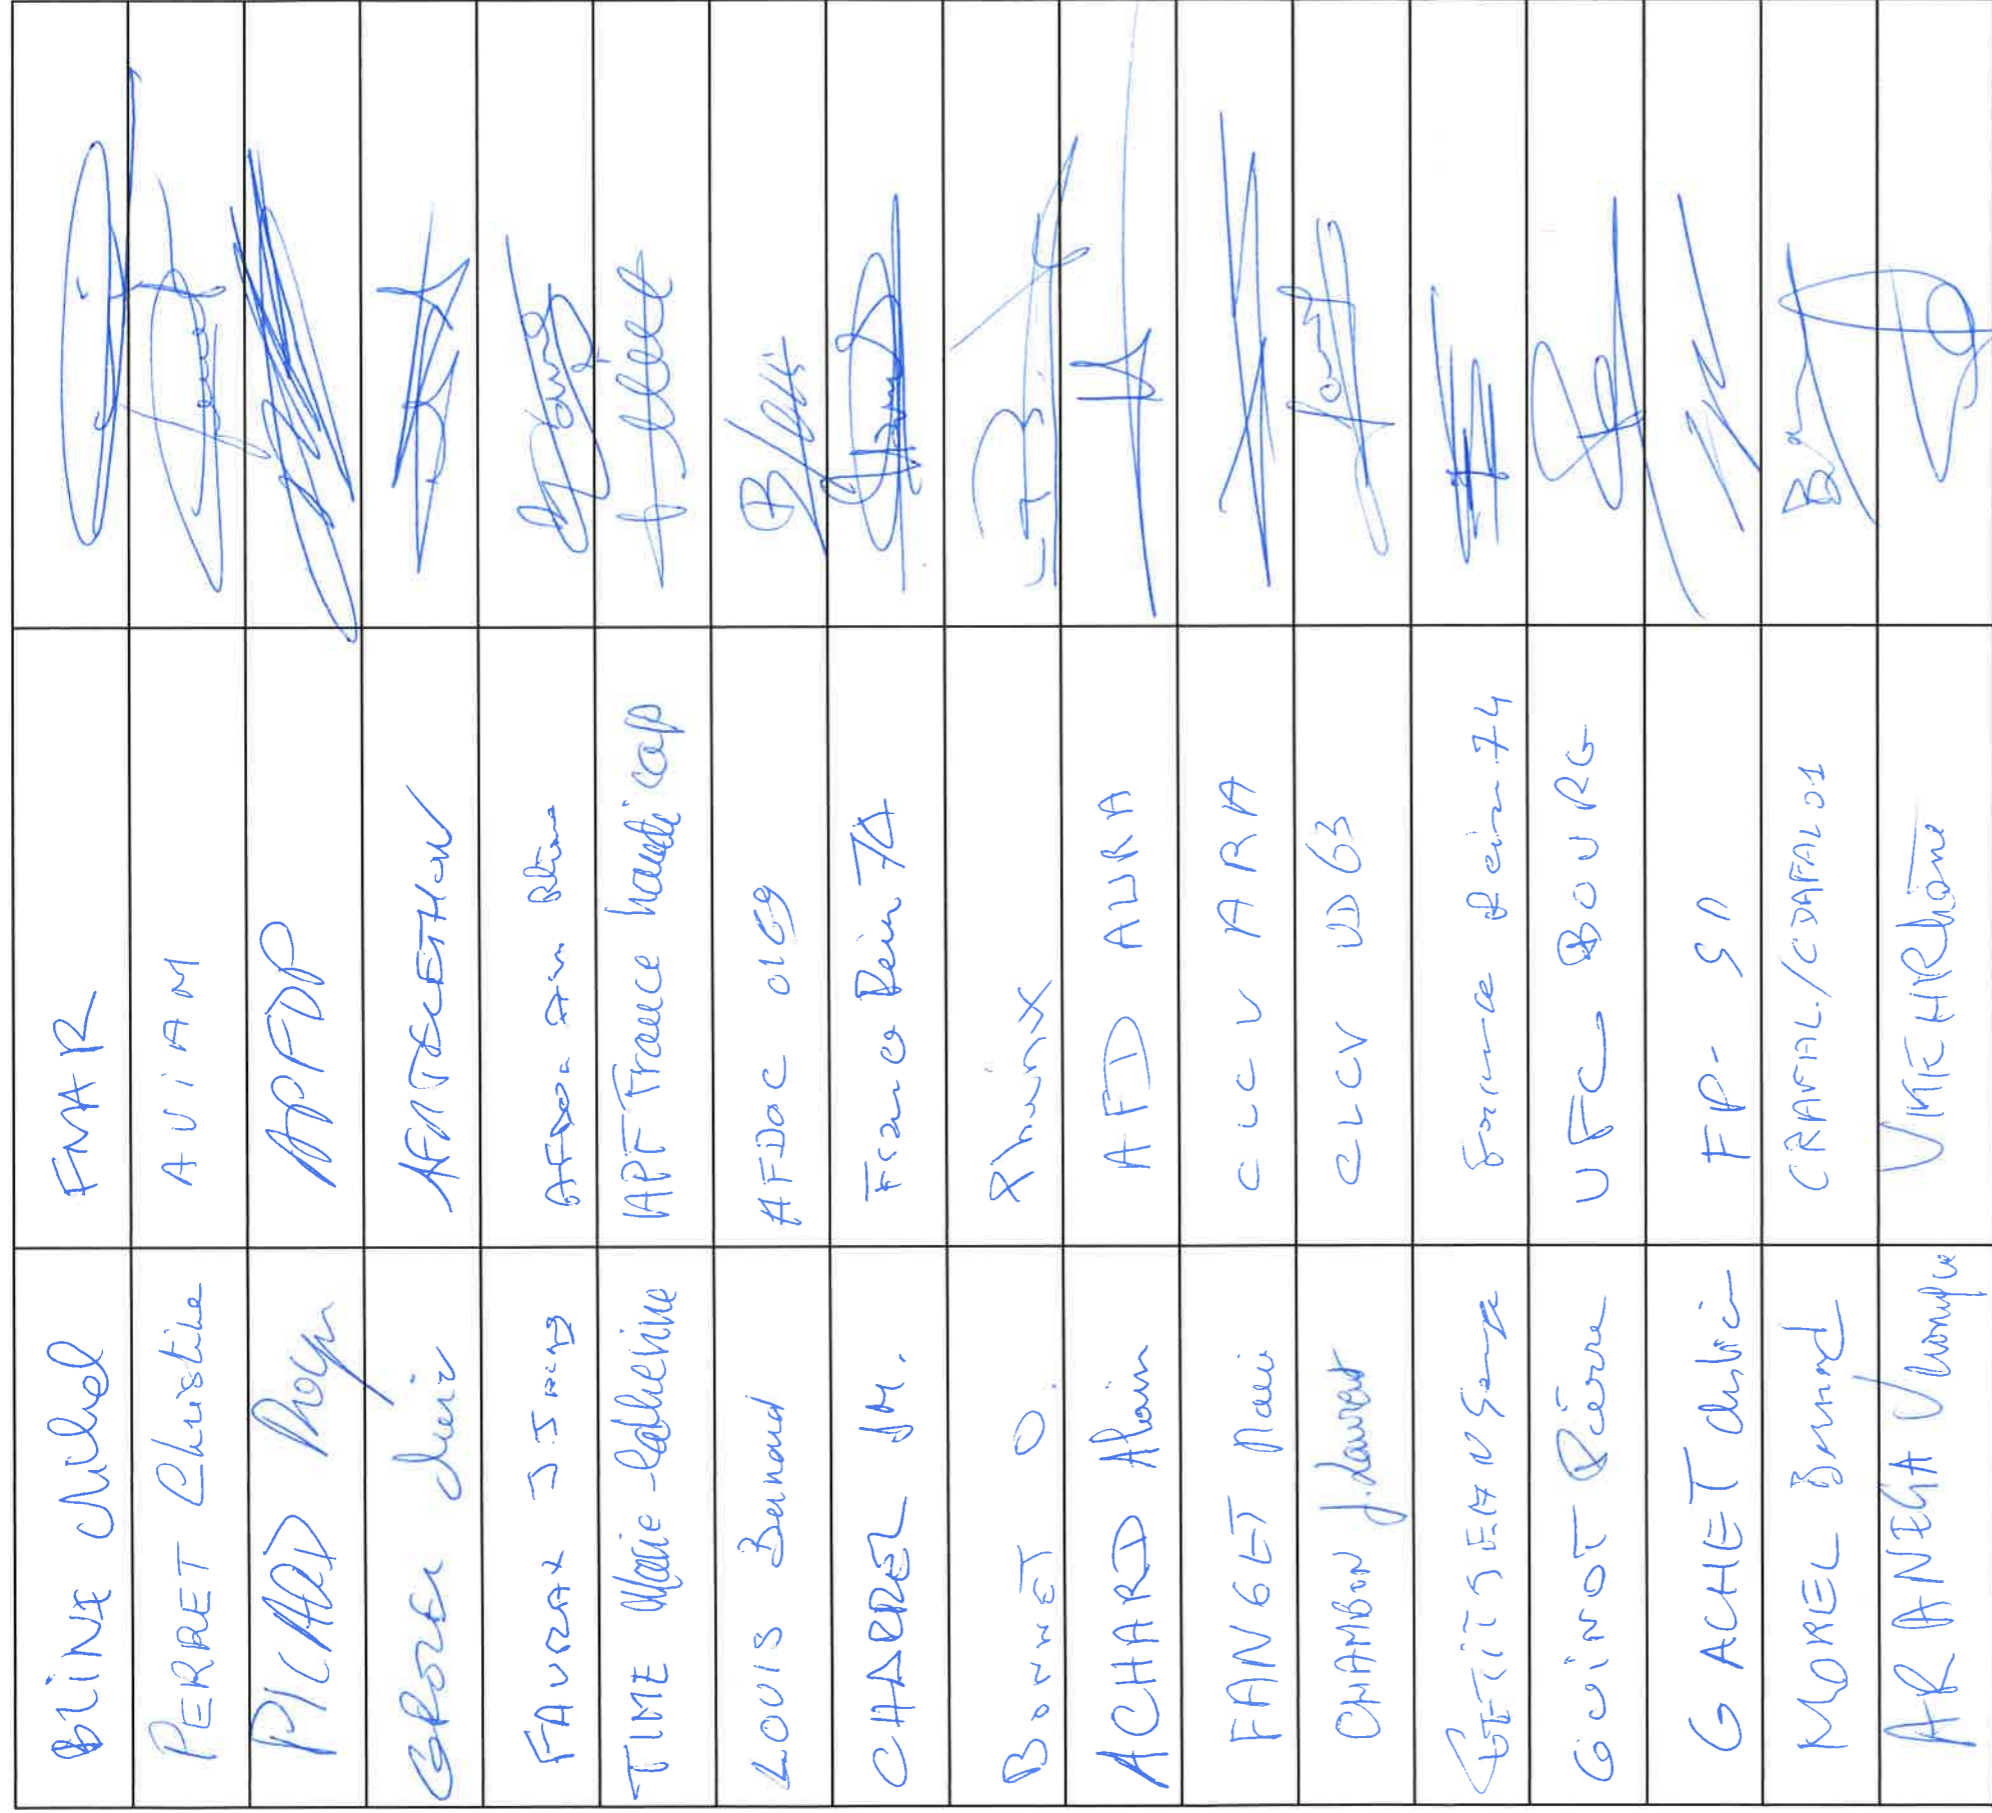 BLINE Michel FNAR
PERRET Christine AViAM
PICARD APFDP
GROZEL AFMTELETHON
FAURAX AFDOC Ain Rhône
TIME Marie-Catherine APF France handicap
LOUIS Bernard AFDOC 0169
CHARREL JM. France Rein 7A
BONNET O. Phenix
ACHARD Alain AFD AURA
FANGET Marie CLCV ARA
CHAMBON J. Laurent CLCV UD63
PETITJEAN Serge France Rein 74
GUINOT Pierre UFC BOURG
GACHET FP-
MOREL Bernard CRAFAL/CDAFAL01
ARANEGA Veronique VMEHRhône